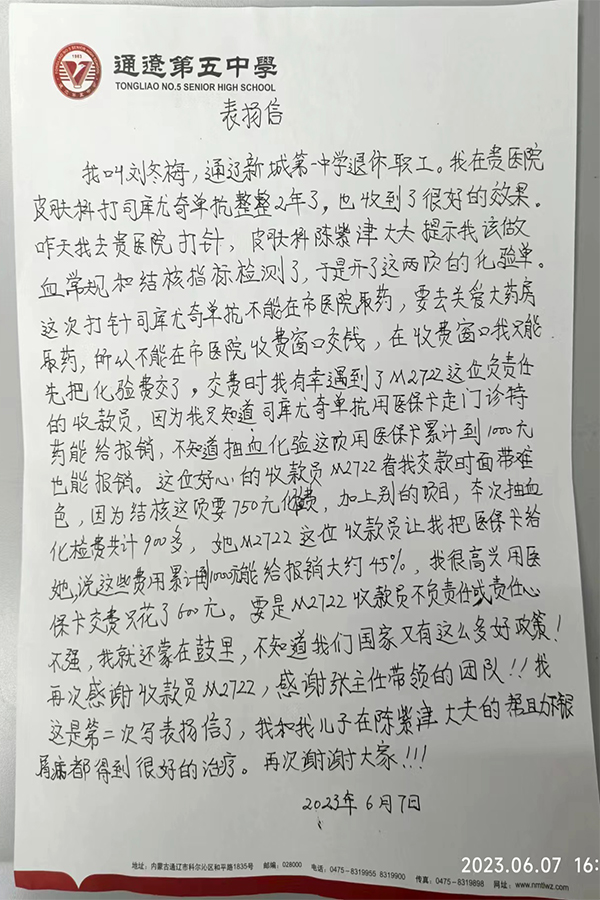 1983
通遼第五中學
TONGLIAO NO.5 SENIOR HIGH SCHOOL
表扬信
我叫刘冬梅，通辽新城第一中学退休职工。我在贵医院
皮肤科打司库尤奇单抗整整2年了，也收到了很好的效果。
昨天我去贵医院打针，皮肤科陈紫津大夫提示我该做
血常规和结核指标检测了，于是开了这两项的化验单。
这次打针司库尤奇单抗不能在市医院取药，要去关爱大药房
取药，所以不能在市医院收费窗口交钱，在收费窗口我只能
先把化验费交了，交费时我有幸遇到了M2722这位负责任
的收款员，因为我只知道司库尤奇单抗用医保卡走门诊特
药能给报销，不知道抽血化验这项用医保卡累计到1000元
也能报销。这位好心的收款员M2722看我交款时面带难
色，因为结核这项要750元化验费，加上别的项目，本次抽血
化检费共计900多，她M2722这位收款员让我把医保卡给
她，说这些费用累计到1000元能给报销大约45%，我很高兴用医
保卡交费只花了600元。要是M2722收款员不负责任或责任心
不强，我就还蒙在鼓里，不知道我们国家又有这么多好政策！
再次感谢收款员M2722，感谢张主任带领的团队！！我
这是第二次写表扬信了，我和我儿子在陈紫津大夫的帮助下银
屑病都得到很好的治疗。再次谢谢大家！！！
2023年6月7日
地址：内蒙古通辽市科尔沁区和平路1835号 邮编：028000 电话：0475-8319955 8319900 传真：0475-8319898 网址：www.nmtlwz.com
2023.06.07 16: